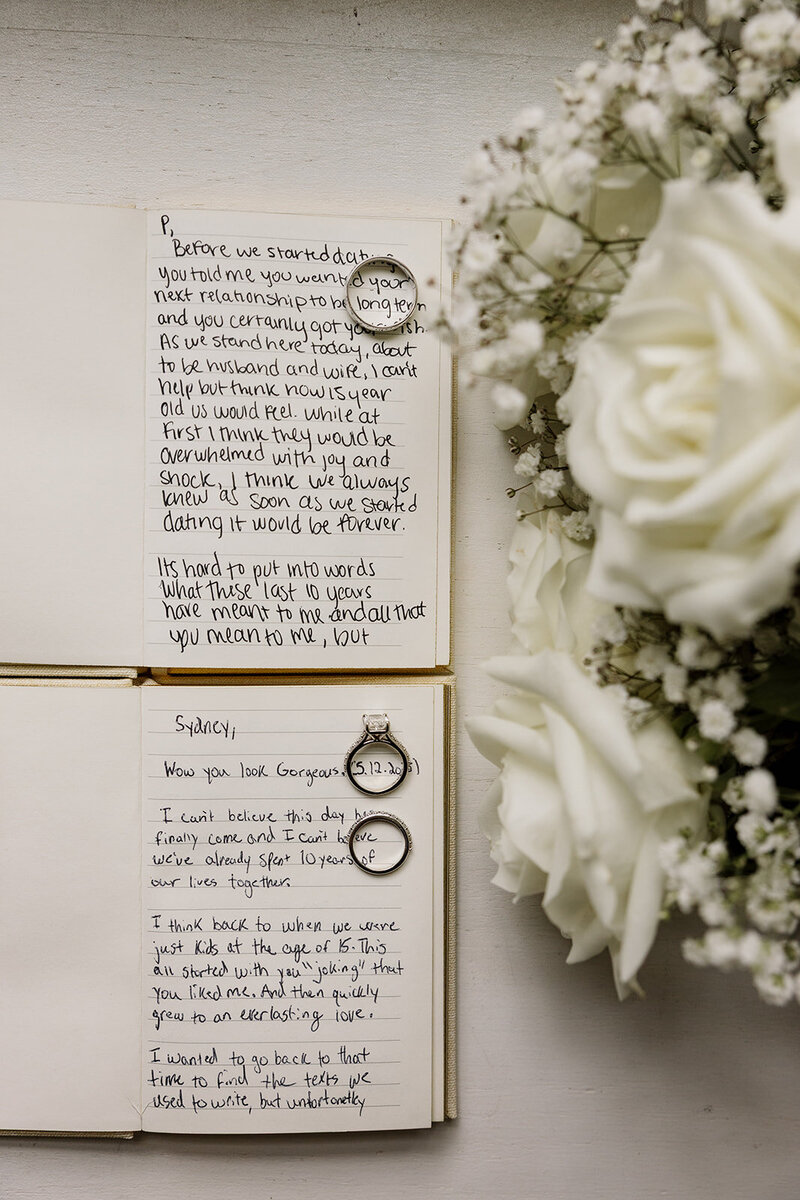 P,
Before we started dating
you told me you wanted your
next relationship to be long term
and you certainly got your wish.
As we stand here today, about
to be husband and wife, I can't
help but think how 15 year
old us would feel. While at
first I think they would be
overwhelmed with joy and
shock, I think we always
knew as soon as we started
dating it would be forever.
Its hard to put into words
what these last 10 years
have meant to me and all that
you mean to me, but
Sydney,
Wow you look Gorgeous. (5.12.20
I can't believe this day has
finally come and I can't believe
we've already spent 10 years of
our lives together.
I think back to when we were
just kids at the age of 15. This
all started with you "joking" that
you liked me. And then quickly
grew to an everlasting love.
I wanted to go back to that
time to find the texts we
used to write, but unfortunetley